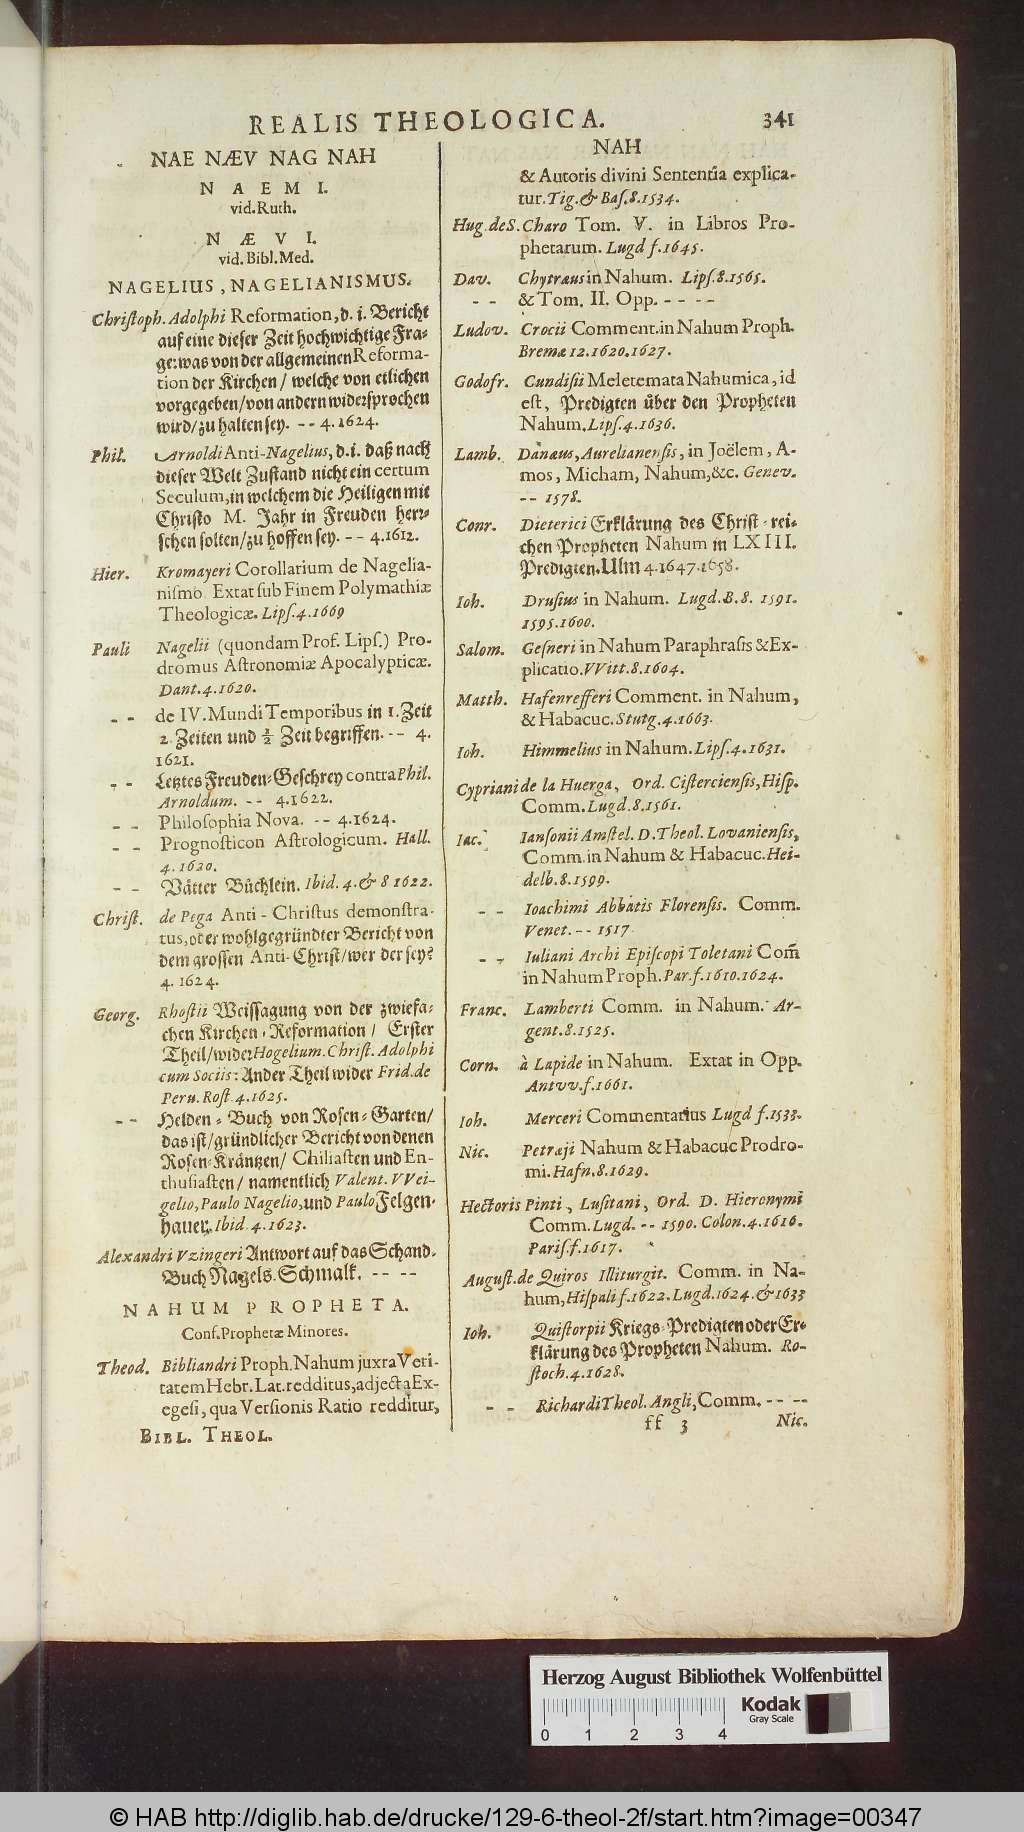 REALIS THEOLOGICA. 341
NAE NÆV NAG NAH
N A E M I.
vid. Ruth.
N Æ V I.
vid. Bibl. Med.
NAGELIUS, NAGELIANISMUS.
Christoph. Adolphi Reformation, d. i. Bericht
auf eine dieser Zeit hochwichtige Fra-
ge: was von der allgemeinen Reforma-
tion der Kirchen / welche von etlichen
vorgegeben / von andern widersprochen
wird / zu halten sey. -- 4. 1624.
Phil. Arnoldi Anti-Nagelius, d. i. daß nach
dieser Welt Zustand nicht ein certum
Seculum, in welchem die Heiligen mit
Christo M. Jahr in Freuden herr-
schen solten / zu hoffen sey. -- 4. 1612.
Hier. Kromayeri Corollarium de Nagelia-
nismo. Extat sub Finem Polymathiæ
Theologicæ. Lips. 4. 1669
Pauli Nagelii (quondam Prof. Lips.) Pro-
dromus Astronomiæ Apocalypticæ.
Dant. 4. 1620.
-- de IV. Mundi Temporibus in 1. Zeit
2. Zeiten und ½ Zeit begriffen. -- 4.
1621.
-- Letztes Freuden-Geschrey contra Phil.
Arnoldum. -- 4. 1622.
-- Philosophia Nova. -- 4. 1624.
-- Prognosticon Astrologicum. Hall.
4. 1620.
-- Vätter Büchlein. Ibid. 4. & 8 1622.
Christ. de Pega Anti-Christus demonstra-
tus, oder wohlgegründter Bericht von
dem grossen Anti-Christ / wer der sey?
4. 1624.
Georg. Rhostii Weissagung von der zwiefa-
chen Kirchen-Reformation / Erster
Theil / wider Hogelium. Christ. Adolphi
cum Sociis: Ander Theil wider Frid. de
Peru. Rost. 4. 1625.
-- Helden-Buch von Rosen-Garten /
das ist / gründlicher Bericht von denen
Rosen-Kräntzen / Chiliasten und En-
thusiasten / namentlich Valent. VVei-
gelio, Paulo Nagelio, und Paulo Felgen-
hauer. Ibid. 4. 1623.
Alexandri Vzingeri Antwort auf das Schand-
Buch Nagels. Schmalk. -- --
NAHUM PROPHETA.
Conf. Prophetæ Minores.
Theod. Bibliandri Proph. Nahum juxta Veri-
tatem Hebr. Lat. redditus, adjecta Ex-
egesi, qua Versionis Ratio redditur,
BIBL. THEOL.
NAH
& Autoris divini Sententia explica-
tur. Tig. & Bas. 8. 1534.
Hug. de S. Charo Tom. V. in Libros Pro-
phetarum. Lugd f. 1645.
Dav. Chytræus in Nahum. Lips. 8. 1565.
-- & Tom. II. Opp. -- --
Ludov. Crocii Comment. in Nahum Proph.
Bremæ 12. 1620. 1627.
Godofr. Cundisii Meletemata Nahumica, id
est, Predigten über den Propheten
Nahum. Lips. 4. 1636.
Lamb. Danæus, Aurelianensis, in Joëlem, A-
mos, Micham, Nahum, &c. Genev.
-- 1578.
Conr. Dieterici Erklärung des Christ-rei-
chen Propheten Nahum in LXIII.
Predigten. Ulm 4. 1647. 1658.
Ioh. Drusius in Nahum. Lugd. B. 8. 1591.
1595. 1600.
Salom. Gesneri in Nahum Paraphrasis & Ex-
plicatio. VVitt. 8. 1604.
Matth. Hafenrefferi Comment. in Nahum,
& Habacuc. Stutg. 4. 1663.
Ioh. Himmelius in Nahum. Lips. 4. 1631.
Cypriani de la Huerga, Ord. Cisterciensis, Hisp.
Comm. Lugd. 8. 1561.
Iac. Iansonii Amstel. D. Theol. Lovaniensis,
Comm. in Nahum & Habacuc. Hei-
delb. 8. 1599.
-- Ioachimi Abbatis Florensis. Comm.
Venet. -- 1517
-- Iuliani Archi Episcopi Toletani Com̃
in Nahum Proph. Par. f. 1610. 1624.
Franc. Lamberti Comm. in Nahum. Ar-
gent. 8. 1525.
Corn. à Lapide in Nahum. Extat in Opp.
Antvv. f. 1661.
Ioh. Merceri Commentarius Lugd f. 1533.
Nic. Petræji Nahum & Habacuc Prodro-
mi. Hafn. 8. 1629.
Hectoris Pinti, Lusitani, Ord. D. Hieronymi
Comm. Lugd. -- 1590. Colon. 4. 1616.
Paris. f. 1617.
August. de Quiros Illiturgit. Comm. in Na-
hum, Hispali f. 1622. Lugd. 1624. & 1633
Ioh. Quistorpii Kriegs-Predigten oder Er-
klärung des Propheten Nahum. Ro-
stoch. 4. 1628.
-- Richardi Theol. Angli, Comm. -- --
ff 3 Nic.
Herzog August Bibliothek Wolfenbüttel
0 1 2 3 4
Kodak
Gray Scale
© HAB http://diglib.hab.de/drucke/129-6-theol-2f/start.htm?image=00347